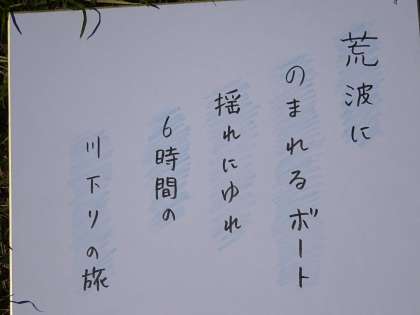 荒波に
のまれるボート
揺れにゆれ
6時間の
川下りの旅